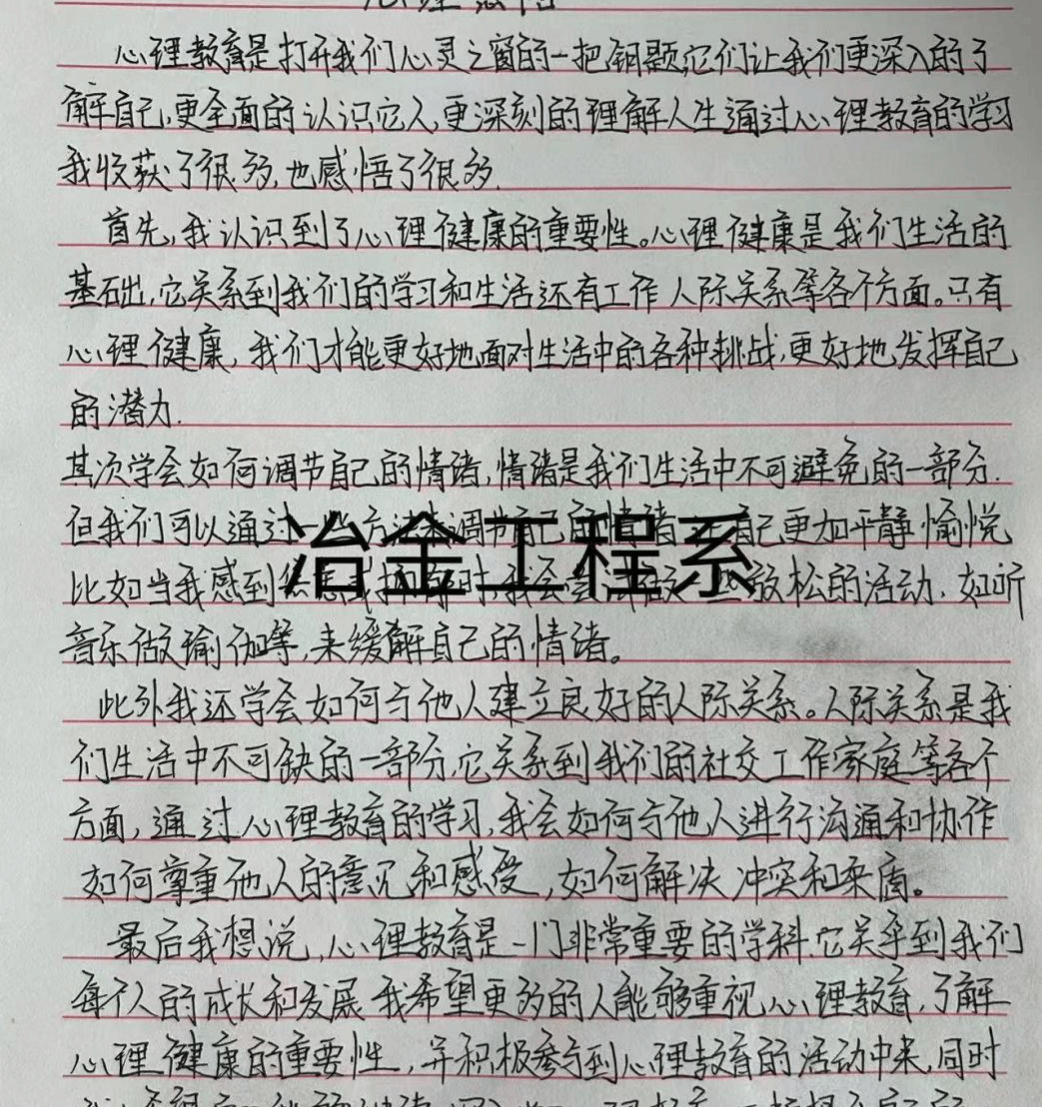 心理感悟
心理教育是打开我们心灵之窗的一把钥题,它们让我们更深入的了
解自己,更全面的认识它人,更深刻的理解人生通过心理教育的学习
我收获了很多,也感悟了很多.
首先,我认识到了心理健康的重要性。心理健康是我们生活的
基础,它关系到我们的学习和生活还有工作人际关系等各个方面。只有
心理健康,我们才能更好地面对生活中的各种挑战,更好地发挥自己
的潜力.
其次学会如何调节自己的情诸,情诸是我们生活中不可避免的一部分.
但我们可以通过一些方法来调节自己的情诸 自己更加平静愉悦
比如当我感到 时,我会尝试做一些放松的活动.如听
音乐做瑜伽等,来缓解自己的情诸。
冶金工程系
此外我还学会如何与他人建立良好的人际关系。人际关系是我
们生活中不可缺的一部分,它关系到我们的社交工作家庭等各个
方面,通过心理教育的学习,我会如何与他人进行沟通和协作
如何尊重他人的意见和感受,如何解决冲突和矛盾。
最后我想说,心理教育是一门非常重要的学科.它关乎到我们
每个人的成长和发展.我希望更多的人能够重视心理教育,了解
心理健康的重要性,并积极参与到心理教育的活动中来,同时